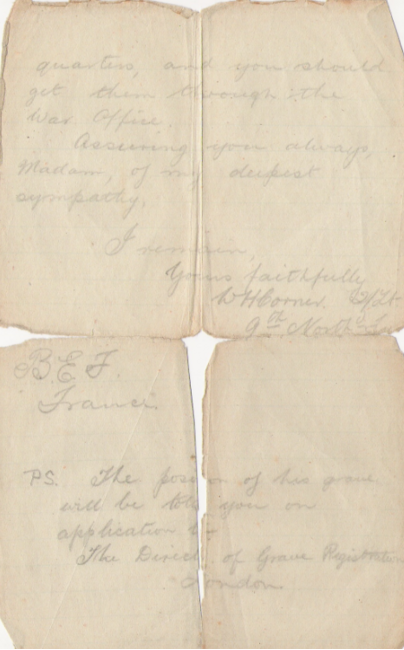 quarters, and you should
get them through the
War Office
Assuring you always,
Madam, of my deepest
sympathy,
I remain,
Yours faithfully
WHCorner. 2/Lt
9th North'd Fus
B.E.F.
France.
P.S. The position of his grave
will be told you on
application to -
The Direct of Grave Registration
London